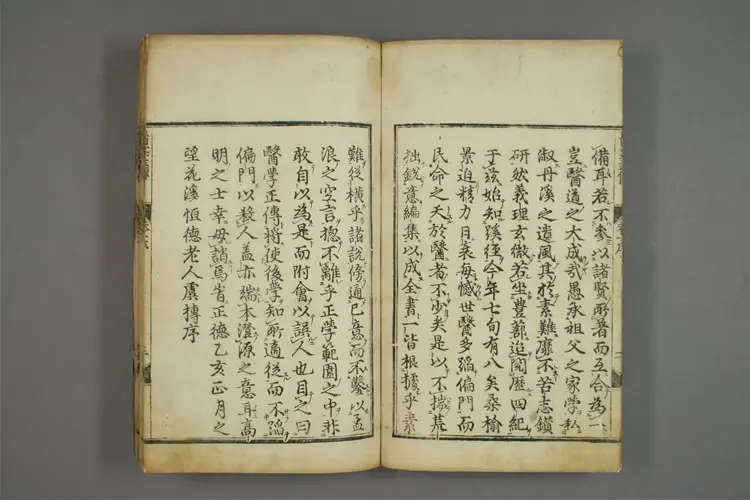 備耳若不參以諸賢所著而互合為一
豈醫道之大成哉愚承祖父之家學私
淑丹溪之遺風其於素難靡不苦志鑽
研然義理玄微若坐豐蔀迨閱歷四紀
于茲始知蹊徑今年七旬有八矣桑榆
景迫精力日衰每憾世醫多蹈偏門而
民命之夭於醫者不少矣是以不揣荒
拙銳意編集以成全書一皆根據乎素
難從橫乎諸說傍通己意而不鑿以孟
浪之空言揔不離乎正學範圍之中非
敢自以為是而附會以誤人也目之曰
醫學正傳將使後學知所適從而不蹈
偏門以殺人蓋亦端本澄源之意耳高
明之士幸毋誚焉旹正德乙亥正月之
望花溪恒德老人虞摶序